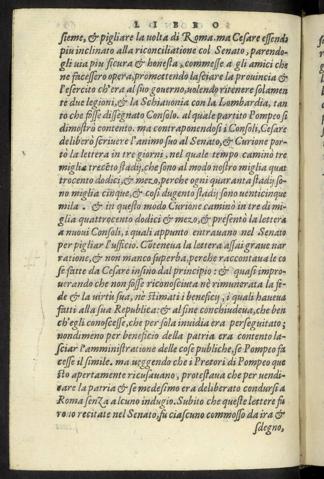 LIBRO
sieme, & pigliare la volta di Roma. ma Cesare essendo
piu inclinato alla riconciliatione col Senato, parendo-
gli uia piu sicura & honesta, commesse a gli amici che
ne facessero opera, promettendo lasciare la prouincia &
l'esercito ch'era al suo gouerno, uolendo ritenere solamen
te due legioni, & la Schiauonia con la Lombardia, tan
to che fosse dissegnato Consolo. al quale partito Pompeo si
dimostrò contento. ma contraponendosi i Consoli, Cesare
deliberò scriuere l'animo suo al Senato, & Curione por-
tò la lettera in tre giorni, nel quale tempo caminò tre
miglia trecẽto stadij, che sono al modo nostro miglia quat
trocento dodici, & mezo, perche ogni quaranta stadij so-
no miglia cinque, & cosi dugento stadij sono uenticinque
mila: & in questo modo Curione caminò in tre dì mi-
glia quattrocento dodici & mezo, & presentò la lettera
a nuoui Consoli, i quali appunto entrauano nel Senato
per pigliar l'ufficio. Cõteneua la lettera assai graue nar-
ratione, & non manco superba, perche raccontaua le co
se fatte da Cesare insino dal principio: & quasi impro-
uerando che non fosse riconosciuta nè rimunerata la fi-
de & la uirtù sua, nè stimati i beneficij, i quali haueua
fatti alla sua Republica: & al fine conchiudeua, che ben
ch'egli conoscesse, che per sola inuidia era perseguitato;
nondimeno per beneficio della patria era contento la-
sciar l'amministratione delle cose publiche, se Pompeo fa
cesse il simile. ma ueggendo che i Pretori di Pompeo que
sto apertamente ricusauano, protestaua che per uendi-
care la patria & se medesimo era deliberato condursi a
Roma senza alcuno indugio. Subito che queste lettere fu
rono recitate nel Senato, fu ciascuno commosso da ira &
sdegno,